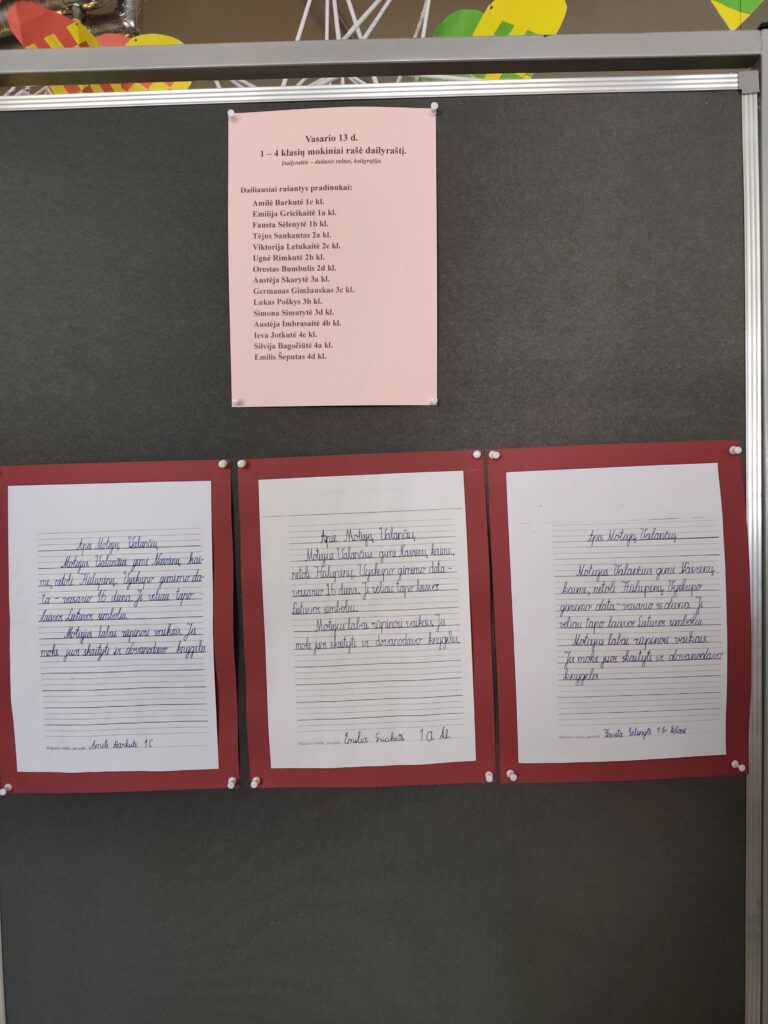 Vasario 13 d.
1 – 4 klasių mokiniai rašė dailyraštį.
Dailyraštis – dailusis raštas, kaligrafija.
Dailiausiai rašantys pradinukai:
Amilė Barkutė 1c kl.
Emilija Gricikaitė 1a kl.
Fausta Sėlenytė 1b kl.
Tėjus Saukantas 2a kl.
Viktorija Letukaitė 2c kl.
Ugnė Rimkutė 2b kl.
Orestas Bumbulis 2d kl.
Austėja Skarytė 3a kl.
Germanas Gimžauskas 3c kl.
Lukas Poškys 3b kl.
Simona Simutytė 3d kl.
Austėja Imbrasaitė 4b kl.
Ieva Jotkutė 4c kl.
Silvija Bagočiūtė 4a kl.
Emilis Šeputas 4d kl.
Apie Motiejų Valančių
Motiejus Valančius gimė Nasrėnų kai-
me, netoli Kūlupėnų. Vyskupo gimimo da-
ta - vasario 16 diena. Ji vėliau tapo
laisvos Lietuvos simboliu.
Motiejus labai rūpinosi vaikais. Jis
mokė juos skaityti ir dovanodavo knygelių.
Amilė Barkutė 1C
Apie Motiejų Valančių
Motiejus Valančius gimė Nasrėnų kaime,
netoli Kūlupėnų. Vyskupo gimimo data -
vasario 16 diena. Ji vėliau tapo laisvos
Lietuvos simboliu.
Motiejus labai rūpinosi vaikais. Jis
mokė juos skaityti ir dovanodavo knygelių.
1a kl.
Apie Motiejų Valančių
Motiejus Valančius gimė Nasrėnų
kaime, netoli Kūlupėnų. Vyskupo
gimimo data - vasario 16 diena. Ji
vėliau tapo laisvos Lietuvos simboliu.
Motiejus labai rūpinosi vaikais.
Jis mokė juos skaityti ir dovanodavo
knygelių.
Fausta Sėlenytė 1b klasė